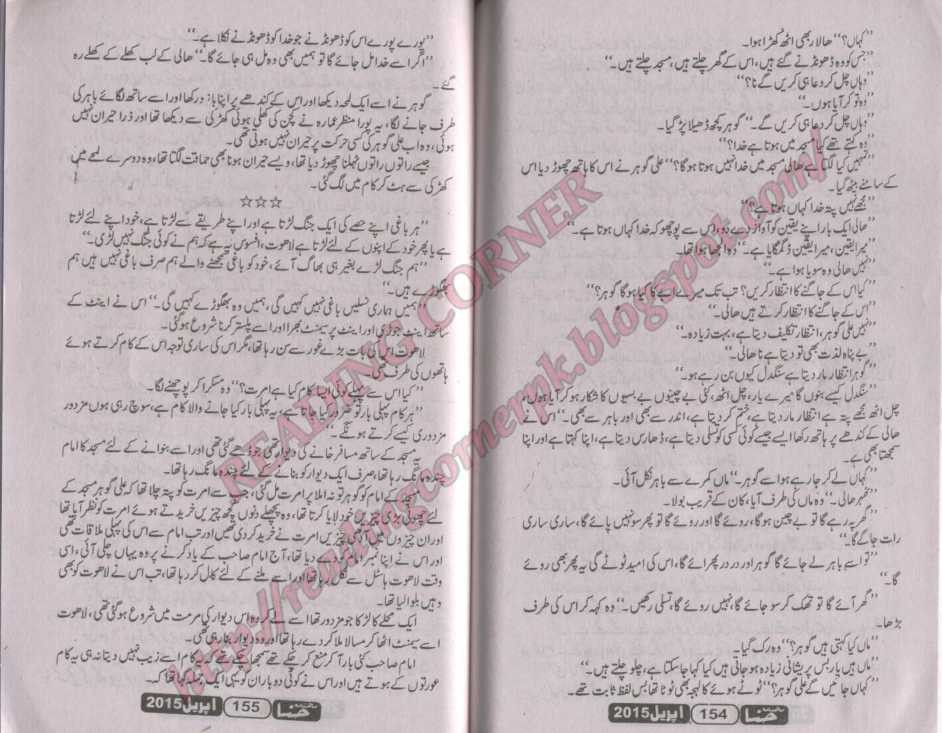 "کہاں؟" ھالار بھی اٹھ کھڑا ہوا۔
"جس کو وہ ڈھونڈنے گئے ہیں، اس کے گھر چلتے ہیں، مسجد چلتے ہیں۔"
"وہاں چل کر دعا ہی کریں گے نا؟"
"وہ تو کر آیا ہوں۔"
"وہاں چل کر دعا ہی کریں گے۔" گوہر کچھ ڈھیلا پڑ گیا۔
"وہ کہتے تھے کیا مسجد میں ہوتا ہے خدا؟"
"تمہیں کیا لگتا ہے ھالی مسجد میں خدا نہیں ہوتا ہوگا؟" علی گوہر نے اس کا ہاتھ چھوڑ دیا اس
کے سامنے بیٹھ گیا۔
"مجھے نہیں پتہ خدا کہاں ہوتا ہے؟"
"ھالی ایک بار اپنے یقین کو آواز دے دو، اس سے پوچھو کہ خدا کہاں ہوتا ہے۔"
"میرا یقین، میرا یقین ڈگمگایا ہے۔" وہ الجھا ہوا تھا۔
"نہیں ھالی وہ سویا ہوا ہے۔"
"کیا اس کے جاگنے کا انتظار کریں؟ تب تک میرے ابے کا کیا ہوگا گوہر؟"
"اس کے جاگنے کا انتظار کرتے ہیں ھالی۔"
"نہیں علی گوہر، انتظار تکلیف دیتا ہے، بہت زیادہ۔"
"بے پناہ لذت بھی تو دیتا ہے نا ھالی۔"
"گوہر انتظار مار دیتا ہے سنگدل کیوں بن رہے ہو۔"
"سنگدل کیسے بنوں گا میرے یار، چل اٹھ، کئی بے چینوں بے بسیوں کا شکار ہو کر آیا ہوں،
چل اٹھ مجھے پتہ ہے انتظار مار دیتا ہے، ختم کر دیتا ہے، اندر سے بھی اور باہر سے بھی۔" اس نے
ھالی کے کندھے پر ہاتھ رکھا ایسے جیسے کوئی کسی کو تسلی دیتا ہے، ڈھارس دیتا ہے، اپنا کہتا ہے اور اپنا
سمجھتا بھی ہے۔
"کہاں لے کر جا رہے ہو اسے گوہر۔" ماں کمرے سے باہر نکل آئی۔
"ٹھہر ھالی۔" وہ ماں کی طرف آیا، کان کے قریب بولا۔
"گھر پہ رہے گا تو بے چین ہوگا، روئے گا اور روئے گا تو پھر سو نہیں پائے گا، ساری ساری
رات جاگے گا۔"
"تو اسے باہر لے جائے گا گوہر اور در در پھرائے گا، اس کی امید ٹوٹے گی یہ پھر بھی روئے
گا۔"
"گھر آئے گا تو تھک کر سو جائے گا، نہیں روئے گا، تسلی رکھیں۔" وہ کہہ کر اس کی طرف
بڑھا۔
"ماں کیا کہتی ہیں گوہر؟" وہ رک گیا۔
"ماں ہیں یار بس پریشانی زیادہ ہو جاتی ہیں کیا کہا جا سکتا ہے، چلو چلتے ہیں۔"
"کہاں جائیں گے علی گوہر؟" ٹوٹے ہوئے کا لہجہ بھی ٹوٹا تھا بس لفظ ثابت تھے۔
حنا 154 اپریل 2015
"پورے پورے اس کو ڈھونڈنے جو خدا کو ڈھونڈنے نکلا ہے۔"
"اگر اسے خدا مل جائے گا تو ہمیں بھی وہ مل ہی جائے گا۔" ھالی کے لب کھلے کے کھلے رہ
گئے۔
گوہر نے اسے ایک لمحہ دیکھا اور اس کے کندھے پر اپنا بازو رکھا اور اسے ساتھ لگائے باہر کی
طرف جانے لگا، یہ پورا منظر عمارہ نے کچن کی کھلی ہوئی کھڑکی سے دیکھا تھا اور ذرا حیران نہیں
ہوئی، وہ اب علی گوہر کی کسی حرکت پر حیران نہیں ہوتی تھی۔
جیسے راتوں راتوں ٹہلنا چھوڑ دیا تھا، ویسے حیران ہونا بھی حماقت لگتا تھا، وہ دوسرے لمحے میں
کھڑکی سے ہٹ کر کام میں لگ گئی۔
☆☆☆
"ہر باغی اپنے حصے کی ایک جنگ لڑتا ہے اور اپنے طریقے سے لڑتا ہے، خود اپنے لئے لڑتا
ہے یا پھر خود کے اپنوں کے لئے لڑتا ہے لاھوت، افسوس یہ ہے کہ ہم نے کوئی جنگ نہیں لڑی۔"
"ہم جنگ لڑے بغیر ہی بھاگ آئے، خود کو باغی سمجھنے والے ہم صرف باغی نہیں ہیں ہم
بھگوڑے ہیں۔"
"ہمیں ہماری نسلیں باغی نہیں کہیں گی، ہمیں وہ بھگوڑے کہیں گی۔" اس نے اینٹ کے
ساتھ اینٹ جوڑی اور اینٹ پر سیمنٹ بھرا اور اسے پلستر کرنا شروع ہو گئی۔
لاھوت اس کی بات بڑے غور سے سن رہا تھا، مگر اس کی ساری توجہ اس کے کام کرتے ہوئے
ہاتھوں کی طرف تھی۔
"کیا اس سے پہلے کوئی ایسا کام کیا ہے امرت؟" وہ مسکرا کر پوچھنے لگا۔
"ہر کام پہلی بار تو ضرور کیا جاتا ہے، یہ پہلی بار کیا جانے والا کام ہے، سوچ رہی ہوں مزدور
مزدوری کیسے کرتے ہونگے۔"
یہ مسجد کے ساتھ مسافر خانے کی دیوار تھی جو ڈھے گئی تھی اور اسے بنوانے کے لئے مسجد کا امام
چندہ مانگ رہا تھا، صرف ایک دیوار کو بنانے کے لئے چندہ مانگ رہا تھا۔
مسجد کے امام کو گوہر تو نہ ملا پر امرت مل گئی، جس سے امرت کو پتہ چلا تھا کہ علی گوہر مسجد کے
لئے چھوٹی بڑی چیزیں خود لایا کرتا تھا، وہ پچھلے دنوں کچھ چیزیں خریدتے ہوئے امرت کو نظر آیا تھا
اور ان چیزوں میں آدھی چیزیں امرت نے خرید کر دی تھیں اور تب امام سے اس کی پہلی ملاقات تھی
اور اس نے اپنا نمبر دیا تھا، آج امام صاحب کے یاد کرنے پر وہ یہاں چلی آئی، اسی
وقت لاھوت ہاسٹل سے نکل رہا تھا اور اسے ملنے کے لئے کال کر رہا تھا، تب اس نے لاھوت کو بھی
وہیں بلوا لیا تھا۔
ایک محلے کا لڑکا جو مزدور تھا اسے لے کر وہ اس دیوار کی مرمت میں شروع ہو گئی تھی، لاھوت
اسے سیمنٹ اٹھا کر مسالا ملا کر دے رہا تھا اور وہ دیوار بنا رہی تھی۔
امام صاحب کئی بار آ کر منع کر چکے تھے سمجھا چکے تھے کہ یہ کام اسے زیب نہیں دیتا نہ ہی یہ کام
عورتوں کے ہوتے ہیں اور اس نے کوئی دو بار ان کو یہی ایک جملہ کہا تھا کہ۔
حنا 155 اپریل 2015
READING CORNER
http://readingcornerpk.blogspot.com/